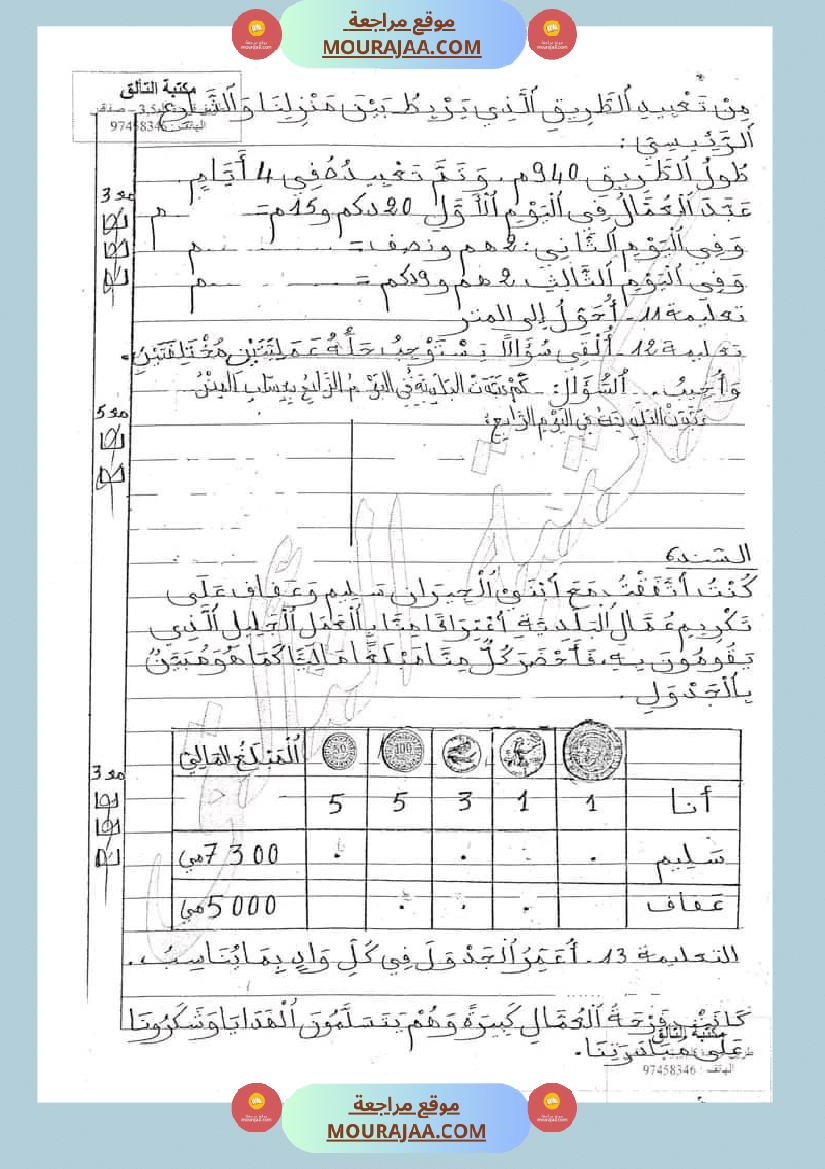 موقع مراجعة
MOURAJAA.COM
مكتبة التألق
الهاتف : 97458346
مِنْ تَعْبِيدِ الطَّرِيقِ الَّذِي يَرْبِطُ بَيْنَ مَنْزِلِنَا وَالشَّارِعِ
الرَّئِيسِيِّ :
طُولُ الطَّرِيقِ 940م. وَتَمَّ تَعْبِيدُهُ فِي 4 أَيَّامٍ.
عَبَّدَ الْعُمَّالُ فِي الْيَوْمِ الْأَوَّلِ 20 دكم و 15م = م
وَفِي الْيَوْمِ الثَّانِي : 2 هم ونصف = ........... م
وَفِي الْيَوْمِ الثَّالِثِ 2 هم و 9 دكم = ........... م
تعليمة 11 - أُحَوِّلُ إلى المتر
تعليمة 12 - أُلْقِي سُؤَالًا يَسْتَوْجِبُ حَلُّهُ عَمَلِيَّتَيْنِ مُخْتَلِفَتَيْنِ.
وَأُجِيبُ. السُّؤَالُ :
مع 3
مع 5
السند 6
كُنْتُ اتَّفَقْتُ مَعَ ابْنَيْ الْجِيرَانِ سَلِيم وَعَفَاف عَلَى
تَكْرِيمِ عُمَّالِ الْبَلَدِيَّةِ اعْتِرَافًا مِنَّا بِالْعَمَلِ الْجَلِيلِ الَّذِي
يَقُومُونَ بِهِ، فَأَحْضَرَ كُلٌّ مِنَّا مَبْلَغًا مَالِيًّا كَمَا هُوَ مُبَيَّنٌ
بِالْجَدْوَلِ.
100 50 الْمَبْلَغُ الْمَالِيّ
أنا 1 1 3 5 5
سَلِيم . . . 7300 مي
عَفَاف . . . 5000 مي
مع 3
التعليمة 13 - أُعَمِّرُ الْجَدْوَلَ فِي كُلِّ وَادٍ بِمَا يُنَاسِبُ..
كَانَتْ فَرْحَةُ الْعُمَّالِ كَبِيرَةً وَهُمْ يَتَسَلَّمُونَ الْهَدَايَا وَشَكَرُونَا
عَلَى مُبَادَرَتِنَا.
مكتبة التألق
الهاتف : 97458346
موقع مراجعة
MOURAJAA.COM